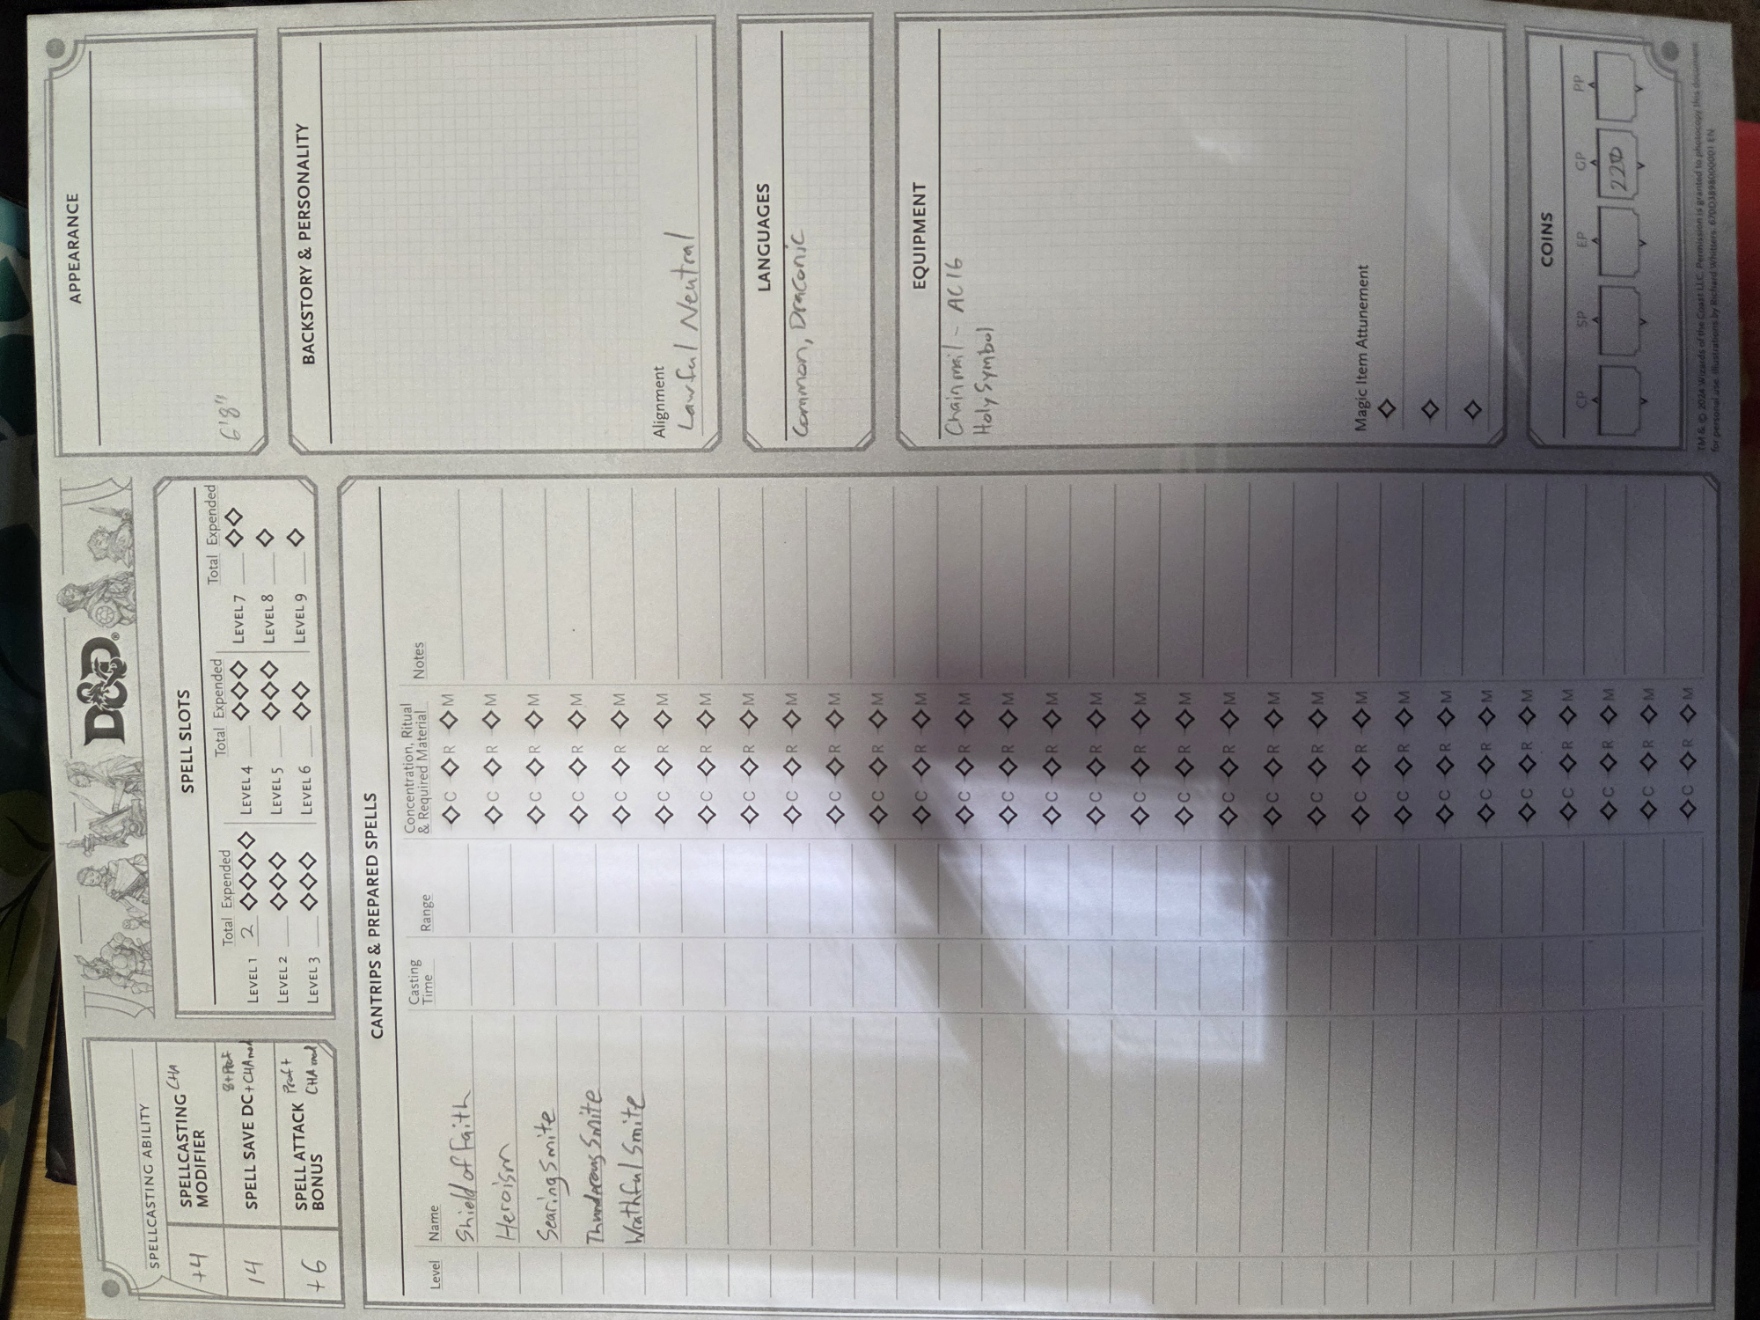 D&D®
SPELLCASTING ABILITY
+4 SPELLCASTING MODIFIER CHA
14 SPELL SAVE DC 8+Prof + CHA mod
+6 SPELL ATTACK BONUS Prof + CHA mod
SPELL SLOTS
Total Expended Total Expended Total Expended
LEVEL 1 2 LEVEL 4 LEVEL 7
LEVEL 2 LEVEL 5 LEVEL 8
LEVEL 3 LEVEL 6 LEVEL 9
CANTRIPS & PREPARED SPELLS
Level Name Casting Time Range Concentration, Ritual & Required Material Notes
Shield of Faith C R M
Heroism C R M
Searing Smite C R M
Thunderous Smite C R M
Wrathful Smite C R M
C R M
C R M
C R M
C R M
C R M
C R M
C R M
C R M
C R M
C R M
C R M
C R M
C R M
C R M
C R M
C R M
C R M
C R M
C R M
C R M
C R M
C R M
C R M
C R M
C R M
APPEARANCE
6'8"
BACKSTORY & PERSONALITY
Alignment
Lawful Neutral
LANGUAGES
Common, Draconic
EQUIPMENT
Chain mail - AC 16
Holy Symbol
Magic Item Attunement
COINS
CP SP EP GP PP
220
TM & © 2024 Wizards of the Coast LLC. Permission is granted to photocopy this document
for personal use. Illustrations by Richard Whitters. 670D3898000001 EN